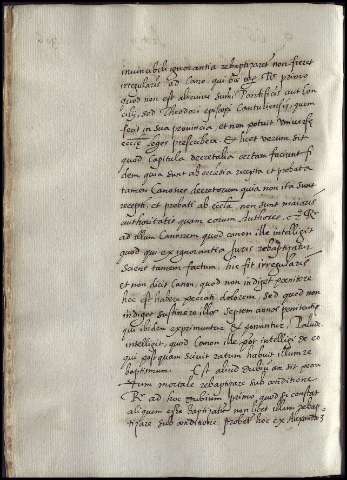 invincibili ignorantia rebaptizaret non fieret
irregularis ad Cano. qui bis primo
quod non est alicuius sumi Pontificis aut Con
cilij, sed Theodori episcopi Cantuliensis, quem
fecit in sua provincia, et non potuit universę
eccłę leges prescribere. Et licet verum sit
quod Capitula decretalia certam faciunt fi
dem quia sunt ab ecclesia recepta et probata
tamen Canones decretorum quia non ita sunt
recepti, et probati ab eccłia non sunt maioris
authoritatis quam eorum Authores.
ad illum Canonem quod canon ille intelligit
quod qui ex ignorantia Juris rebaptizatur
sciens tamen factum, hic fit irregularis
et non dicit Canon, quod non indiget penitere
hoc est habere peccati dolorem, sed quod non
indiget sustinere illos septem annos penitentię
qui ibidem exprimuntur et ponuntur. Palude.
intelligit, quod Canon ille intelligit de eo
qui postquam scivit ratum habuit illum re
baptismum. Est aliud dubium an sit pecca
tum mortale rebaptizare sub conditione.
Rr ad hoc dubium primo quod si constat
aliquem esse baptizatum non licet illum rebap
tizare sub conditione. probatur hoc ex Alexandro 3